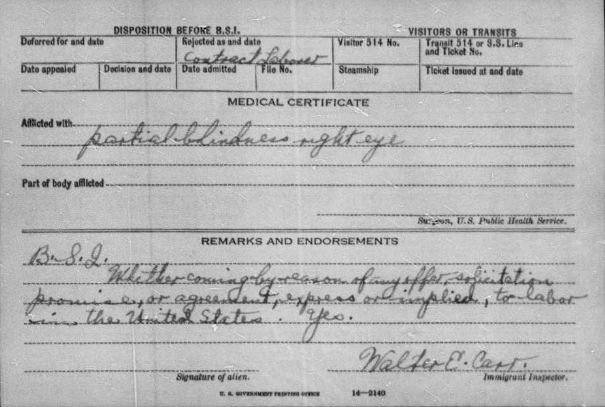 DISPOSITION BEFORE B.S.I. VISITORS OR TRANSITS
Deferred for and date Rejected as and date Visitor 514 No. Transit 514 or S.S. Line and Ticket No.
Contract Laborer
Date appealed Decision and date Date admitted File No. Steamship Ticket issued at and date
MEDICAL CERTIFICATE
Afflicted with partial blindness right eye
Part of body afflicted
Surgeon, U.S. Public Health Service.
REMARKS AND ENDORSEMENTS
B. S. I.
Whether coming by reason of any offer, solicitation
promise, or agreement, express or implied, to labor
in the United States. Yes.
Walter E. Carr.
Signature of alien. Immigrant Inspector.
U. S. GOVERNMENT PRINTING OFFICE 14—2140